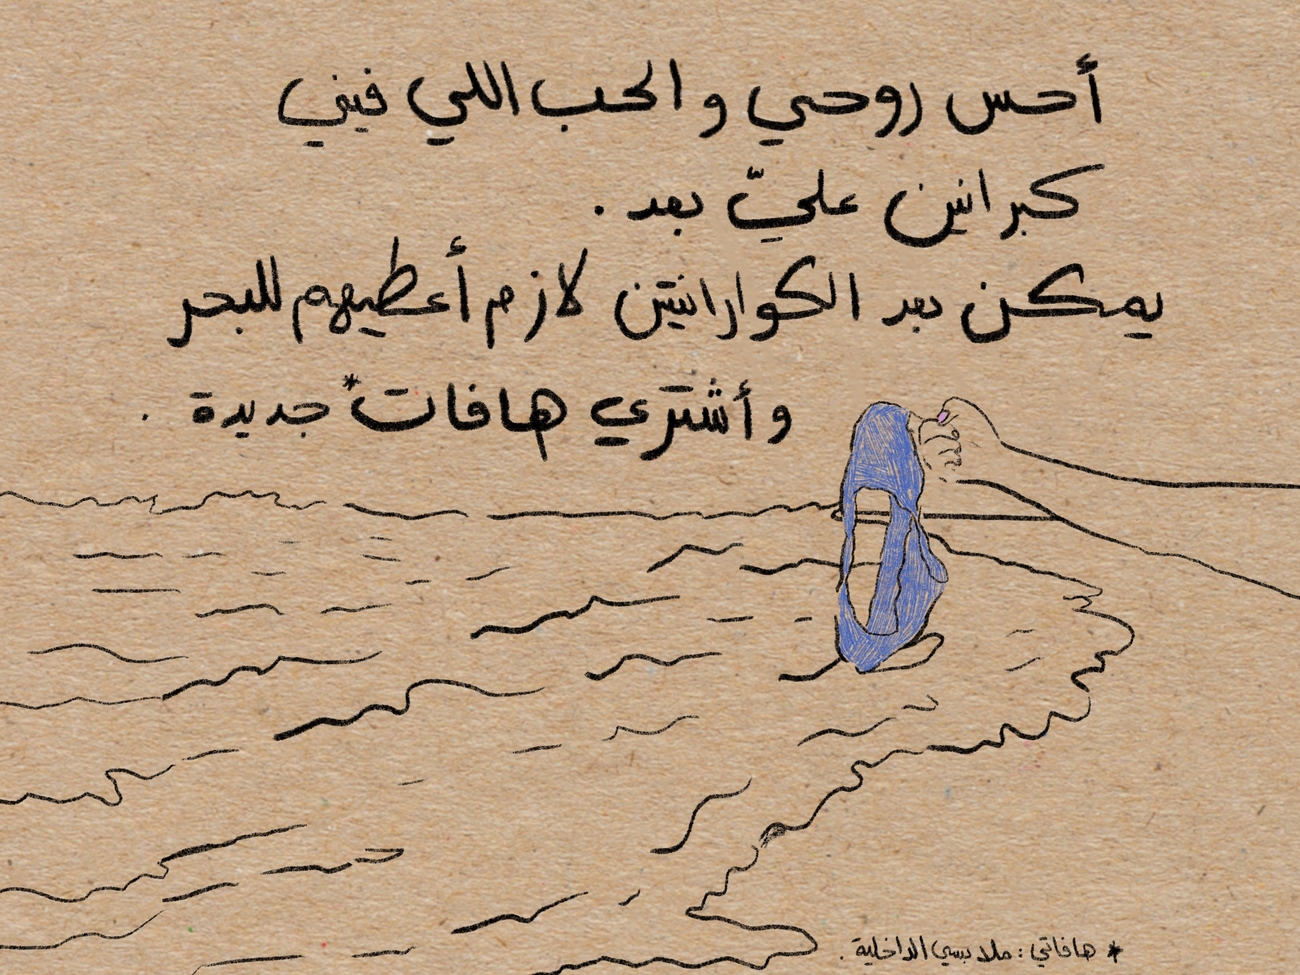 أحس روحي و الحب اللي فيني
كبرانين عليّ بعد .
يمكن بعد الكوارانتين لازم أعطيهم للبحر
و أشتري هافات* جديدة .
* هافاتي : ملابسي الداخلية .